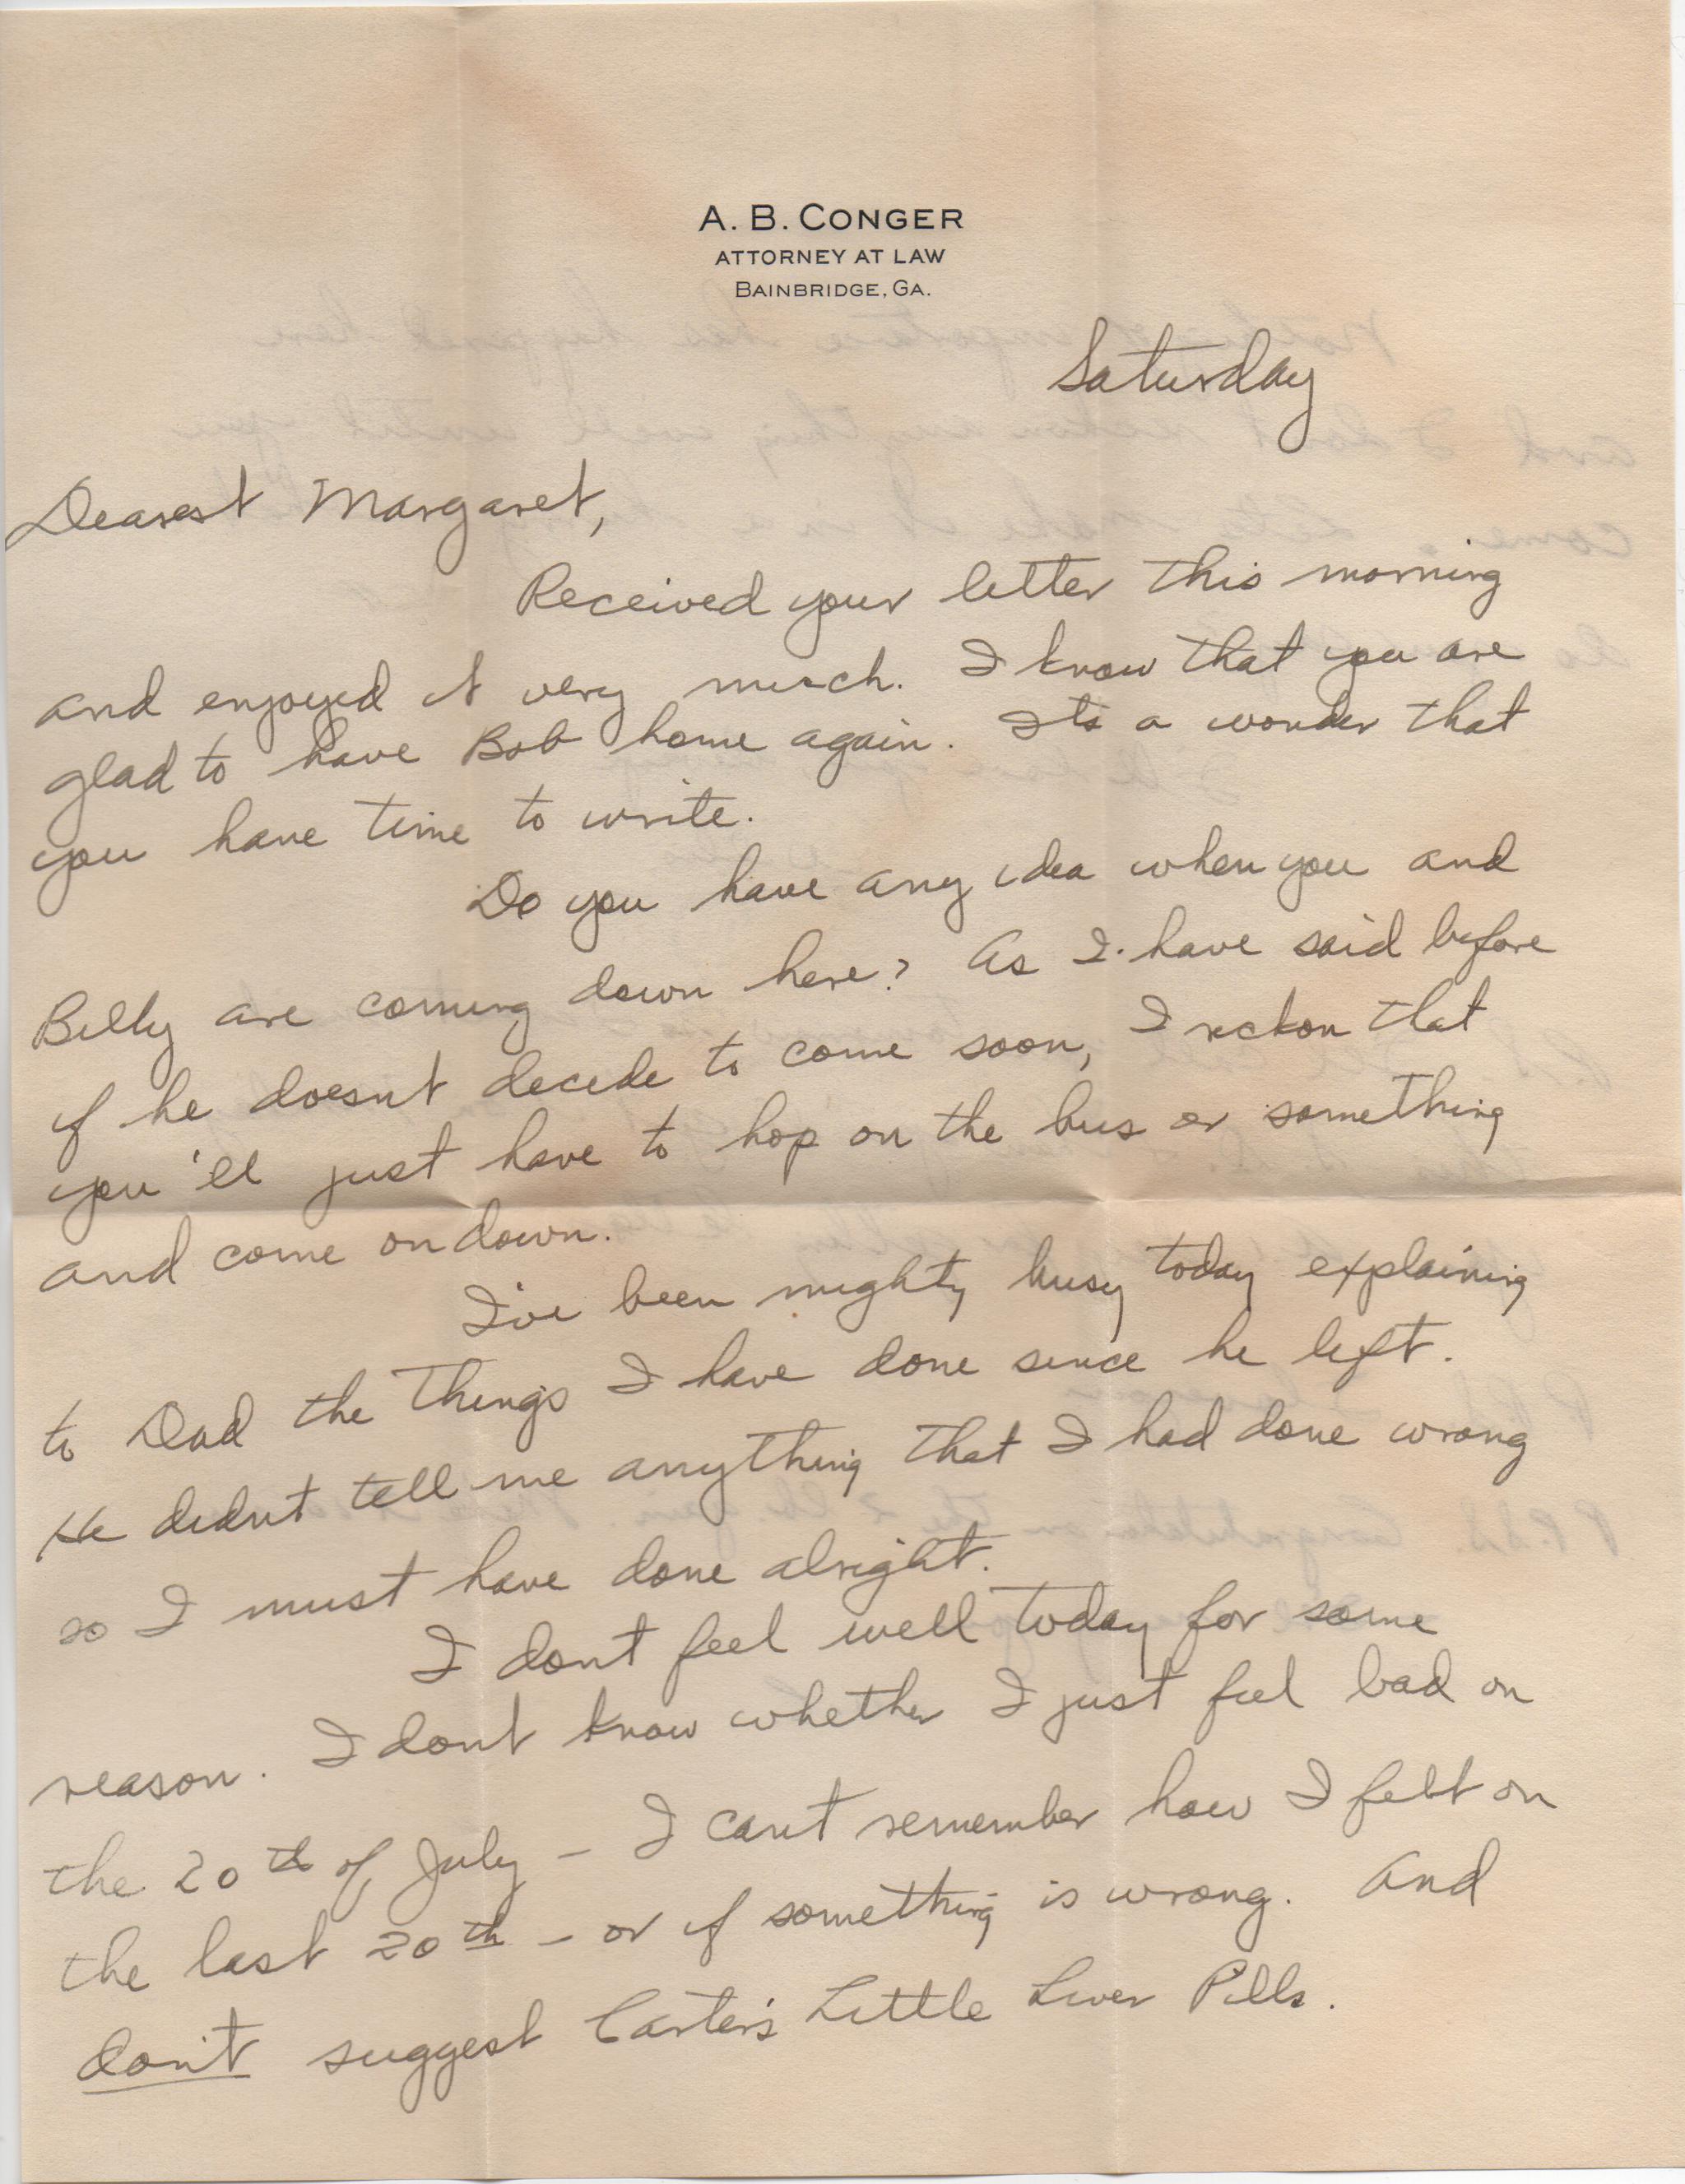 A. B. CONGER
ATTORNEY AT LAW
BAINBRIDGE, GA.
Saturday
Dearest Margaret,
Received your letter this morning
and enjoyed it very much. I know that you are
glad to have Bob home again. Its a wonder that
you have time to write.
Do you have any idea when you and
Billy are coming down here? As I have said before
if he doesnt decide to come soon, I reckon that
you'll just have to hop on the bus or something
and come on down.
I've been mighty busy today explaining
to Dad the things I have done since he left.
He didnt tell me anything that I had done wrong
so I must have done alright.
I dont feel well today for some
reason. I dont know whether I just feel bad on
the 20th of July - I cant remember how I felt on
the last 20th - or if something is wrong. And
don't suggest Carter's Little Liver Pills.